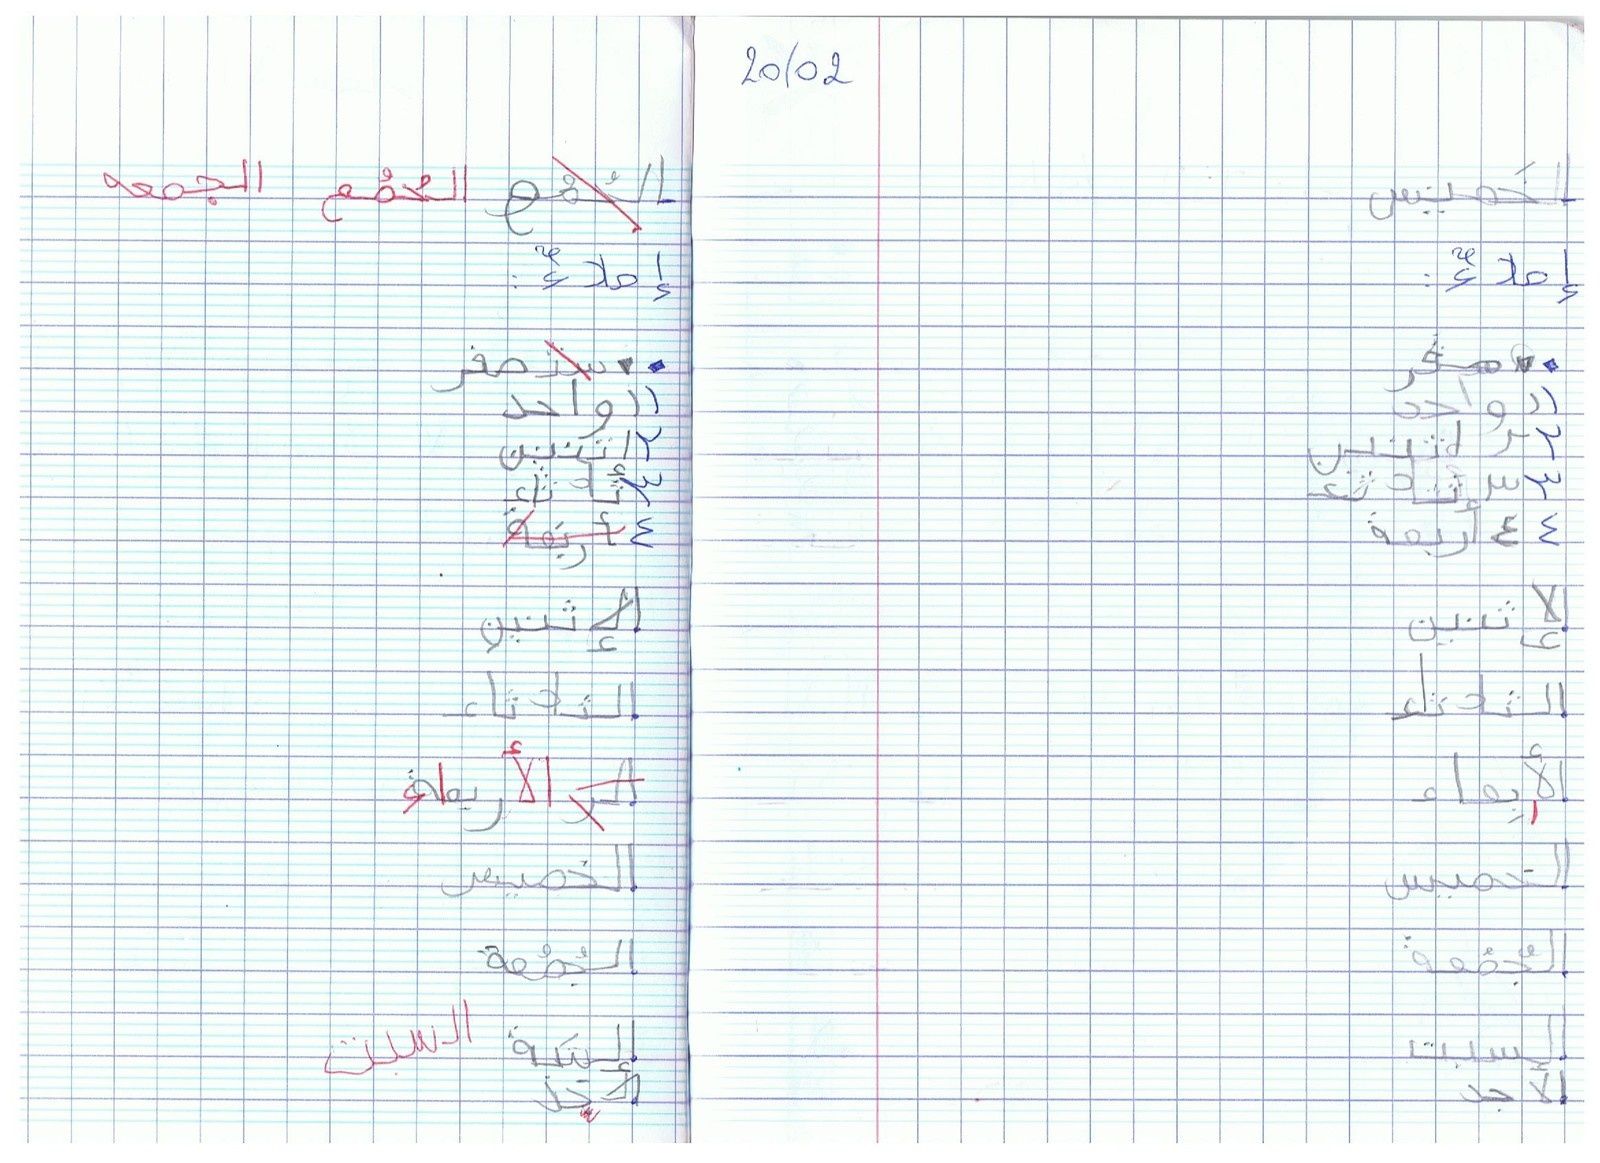 20/02
الخميس
إملاءٌ :
٠ ٠ صفر
١ ١ واحد
٢ ٢ اثنين
٣ ٣ ثلاثاء
٤ ٤ أربعة
الإثنين
الثلاثاء
الأربعاء
الخميس
الجُمُعة
السبت
الأحد
الجمعه
إملاءٌ :
٠ ٠ صفر
١ ١ واحد
٢ اثنين
٣ ثلاثاء
٤ أربعة
الإثنين
الثلاثاء
الأربعاء
الخميس
الجُمُعة
السبت
الأحد